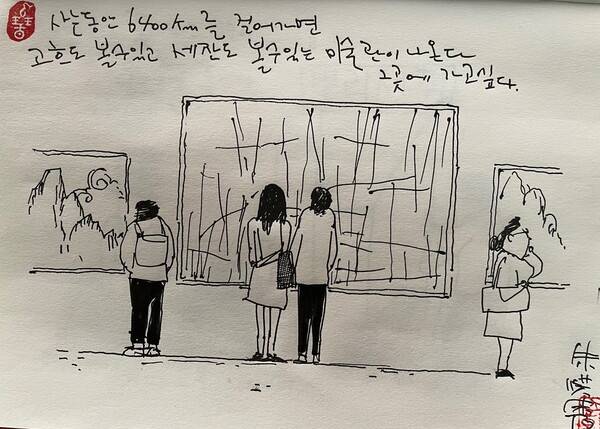 사는동안 6400km를 걸어가면
고흐도 볼수있고 세잔도 볼수있는 미술관이 나온다
그곳에 가고싶다.